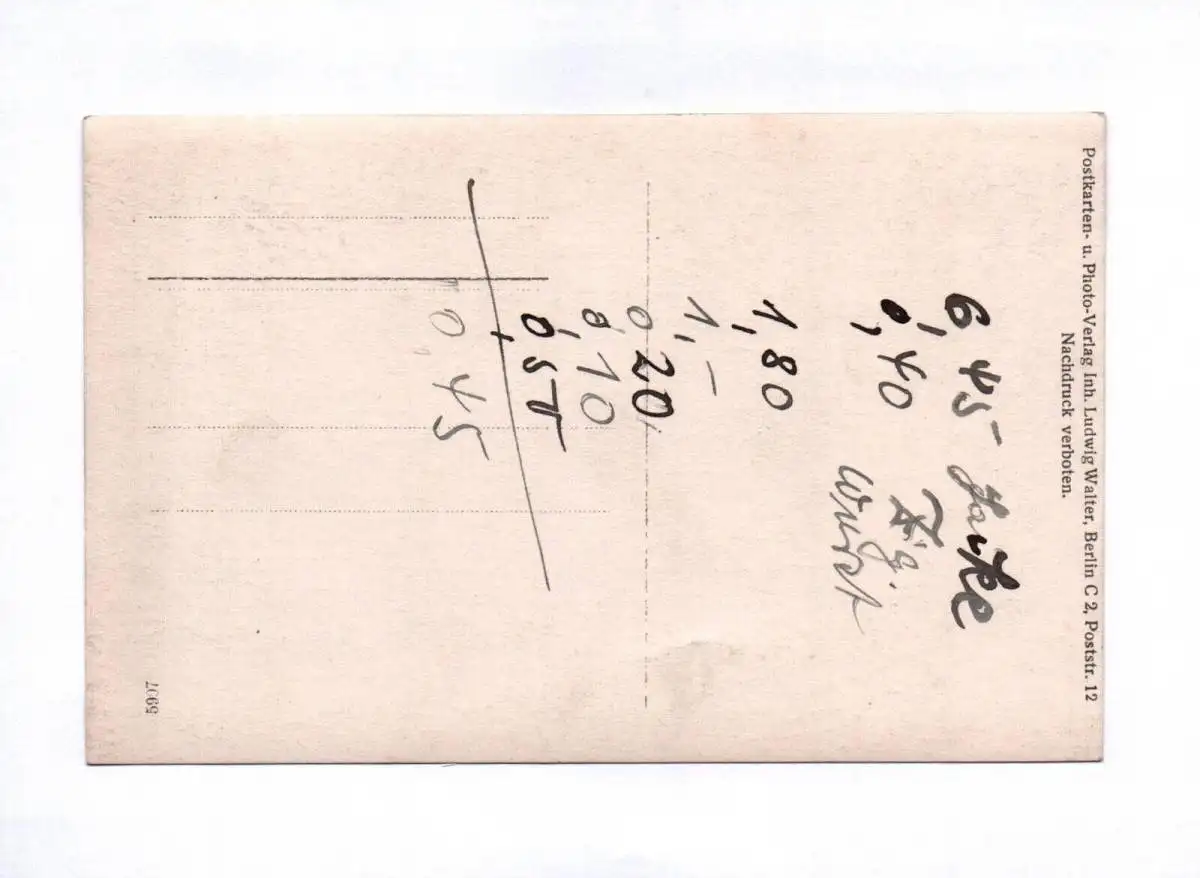 Postkarten- u. Photo-Verlag Inh. Ludwig Walter, Berlin C 2, Poststr. 12
Nachdruck verboten.
6,45-
0,40
Wurst
1,80
1,-
0,20
0,10
0,55
0,45
5907